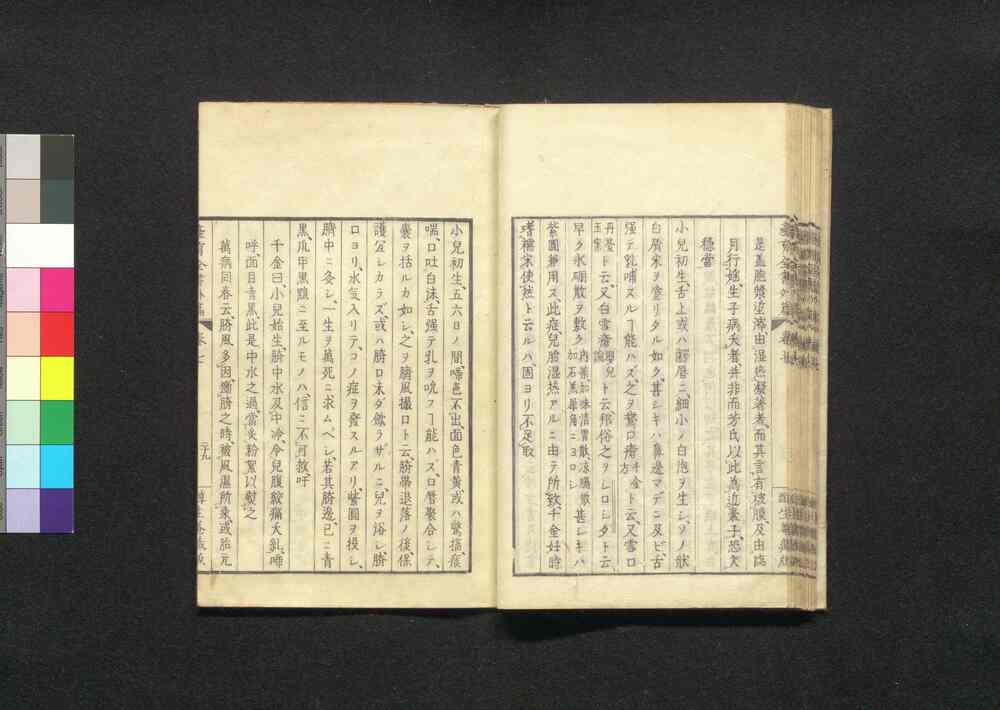 是蓋胞漿壅滯由湿熱凝著者而其言有皮膜及由臨
月行婬生子病夫者並非而芳氏以此為近裏子恐欠
穏當
小兒初生舌上或ハ齶唇ニ細小ノ白泡ヲ生シソノ狀
白屑米ヲ塗リタル如ク甚シキハ鼻邊マデニ及ビ舌
强テ乳哺スルヿ能ハズ之ヲ鵞口瘡 千金方 ト云又雪口
ト云又白雪瘡 嬰兒論 ト云邦俗之ヲシロシタト云
早ク氷硼散ヲ敷ク 甚シキハ
紫圓兼用ス此症兒胎湿熱アルニ由テ所致千金好時
嗜糯米使然ト云ルハ固ヨリ不足取
小兒初生五六日ノ間啼色不出面色青黄或ハ驚搐痰
喘口吐白沫舌强テ乳ヲ吮フヿ能ハズ口唇聚合シテ
囊ヲ括ルカ如シ之ヲ臍風撮口ト云臍帶退落ノ後保
護宜シカラズ或ハ臍口未ダ歛ラザルニ兒ヲ浴シ臍
口ヨリ水気入リテコノ症ヲ發スルアリ紫圓ヲ投シ
臍中ニ灸シ一生ヲ萬死ニ求ムベシ若其臍邊已ニ青
黑爪甲黑黯ニ至ルモノハ信ニ不可救吁
千金曰小兒始生臍中水及中冷令兒腹絞痛夭糺啼
呼面目青黑此是中水之過當灸粉絮以熨之
萬病同春云臍風多因斷臍之時被風濕所乘或胎元
卷七
二十九